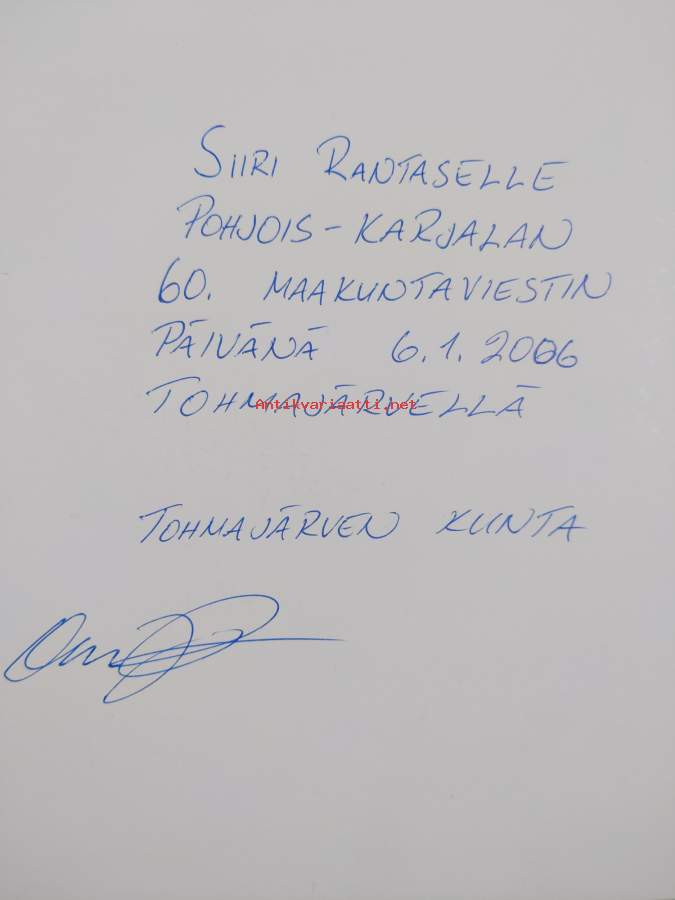 SIIRI RANTASELLE
POHJOIS-KARJALAN
60. MAAKUNTAVIESTIN
PÄIVÄNÄ 6.1.2006
TOHMAJÄRVELLÄ
Antikvariaatti.net
TOHMAJÄRVEN KUNTA